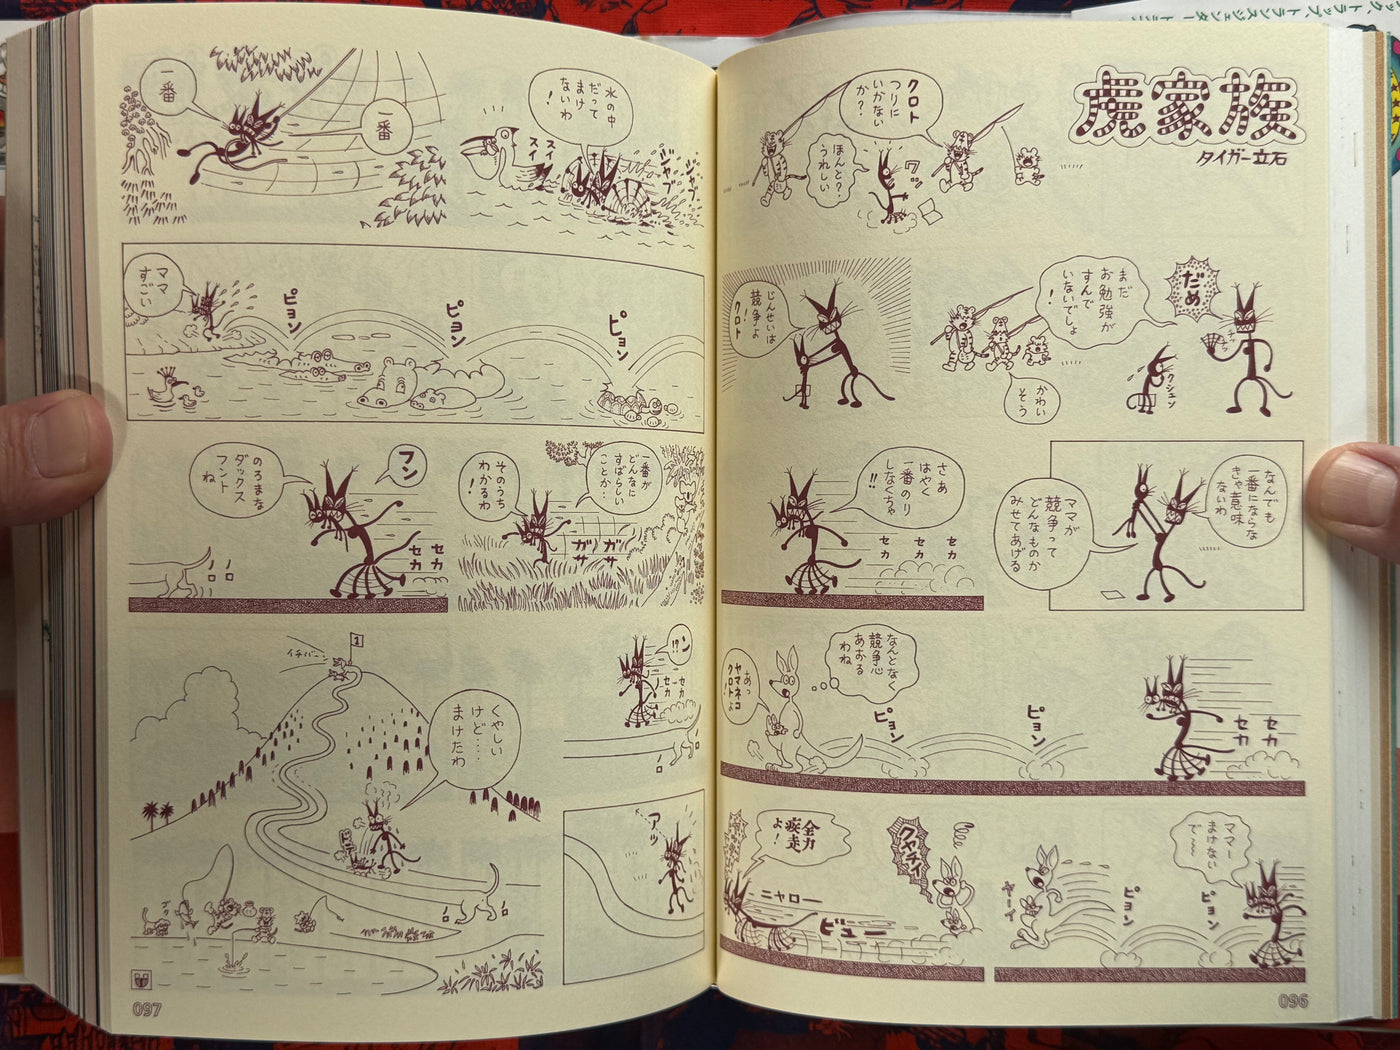 虎家族
タイガー立石
クロト
つりに
いかない
か？
ワッ
ほんと？
うれしい
だめ
まだ
お勉強が
すんで
いないでしょ
！
クシュン
かわい
そう
じんせいは
競争よ
！
クロト
なんでも
一番にならな
きゃ意味
ないわ
ママが
競争って
どんなものか
みせてあげる
さあ
はやく
一番のり
しなくちゃ
!!
セカ
セカ
セカ
セカ
セカ
ピョン
ピョン
なんとなく
競争心
あおる
わね
あっ
ヤマネコ
クロトよ
！
ママー
まけない
で〜〜
ピョン
ピョン
ヤーイ
クヤチイ
全力
疾走
よ！
ニャロー
ビュー
096
水の中
だって
まけ
ないわ
！
ジャブ
ジャブ
スイ
スイ
一番
一番
ママ
すごい
ピョン
ピョン
ピョン
一番が
どんなに
すばらしい
ことか・
ガサ
ガサ
そのうち
わかるわ
！
フン
のろまな
ダックス
フント
ね
セカ
セカ
ノロ
ノロ
ン
!?
セカ
セカ
ノロ
アッ
イチバーン
1
くやしい
けど‥‥
まけたわ
ノロ
ノロ
097